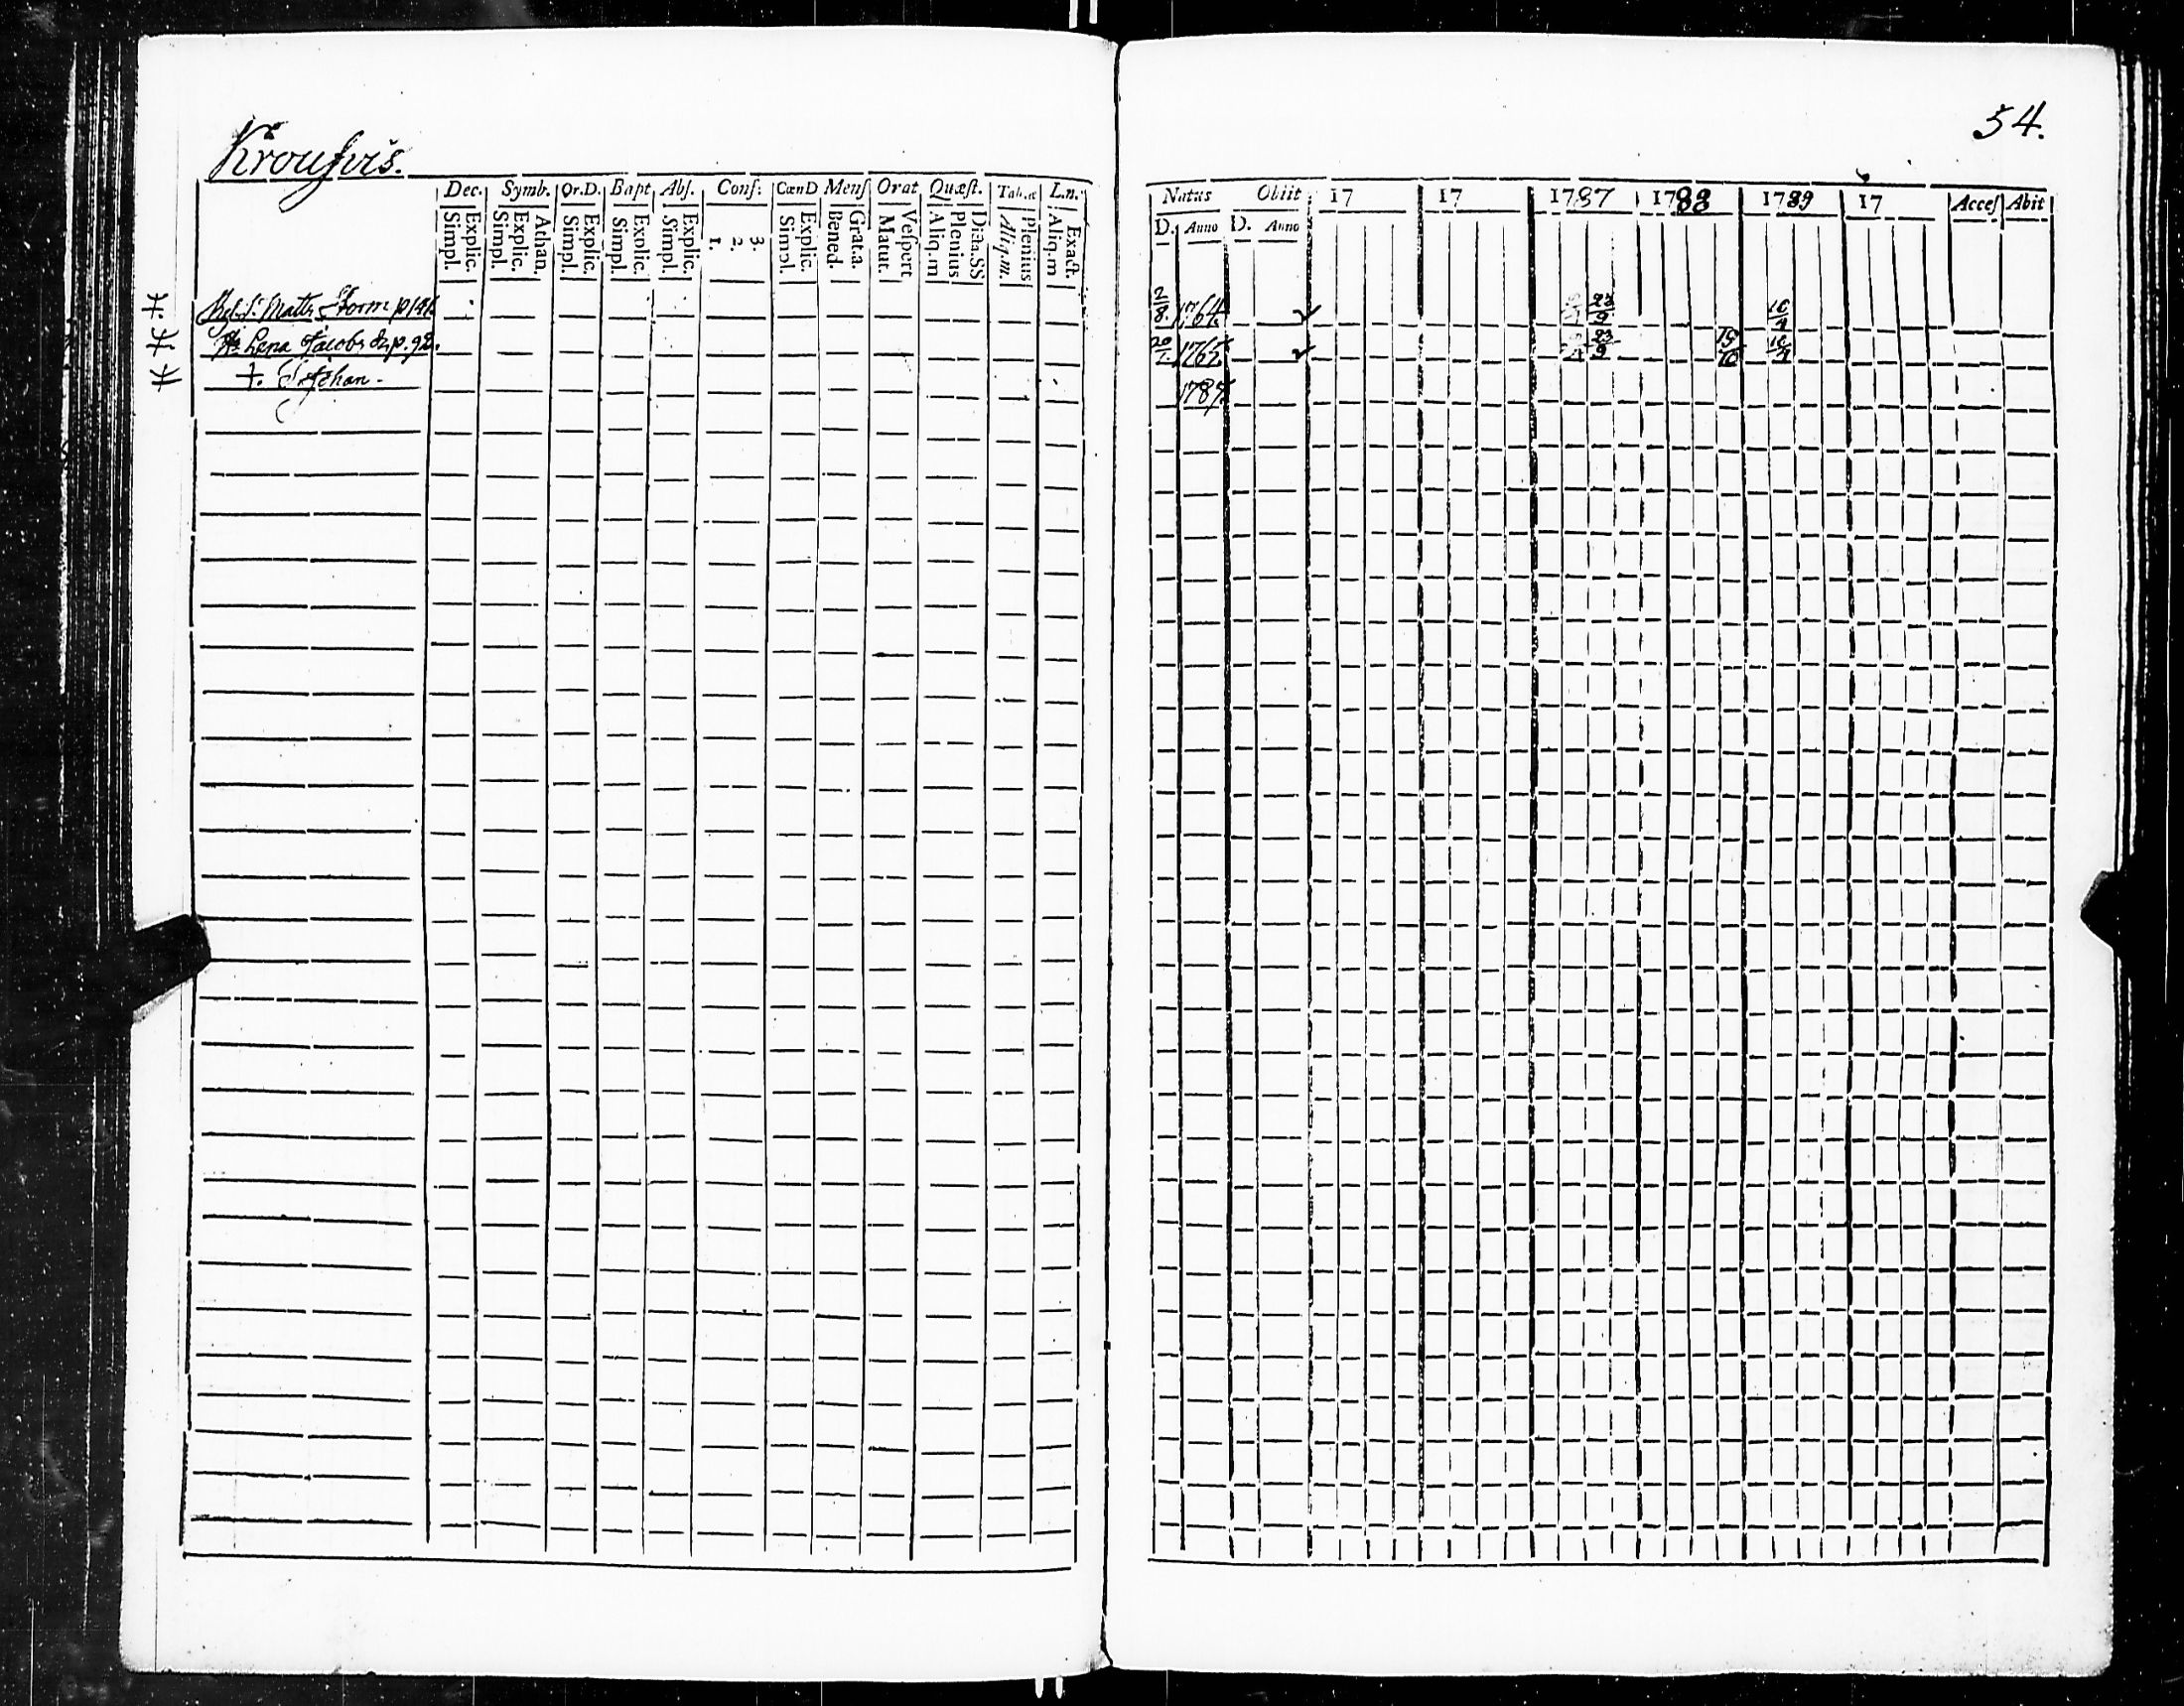 54.
Dec. Symb. Or.D. Bapt Abſ. Conf: CœnD Menſ Orat. Quæſt. Tab.œ L.n.
Simpl. Explic. Simpl. Explic. Athan. Simpl. Explic. Simpl. Explic. Simpl. Explic. 1. 2. 3. Simpl. Explic. Bened. Grat.a. Matut. Veſpert Aliq.m Plenius Dicta.SS Aliq.m. Plenius Aliq.m Exact.
Natus Obiit 17 17 1787 1788 1789 17 Acceſ Abit
D. Anno D. Anno
Matts Storm 2/8. 1764. 23/9 16/4
Lena Jacobs p. 92. 20/7. 23/9
†. Stephan. 1787.